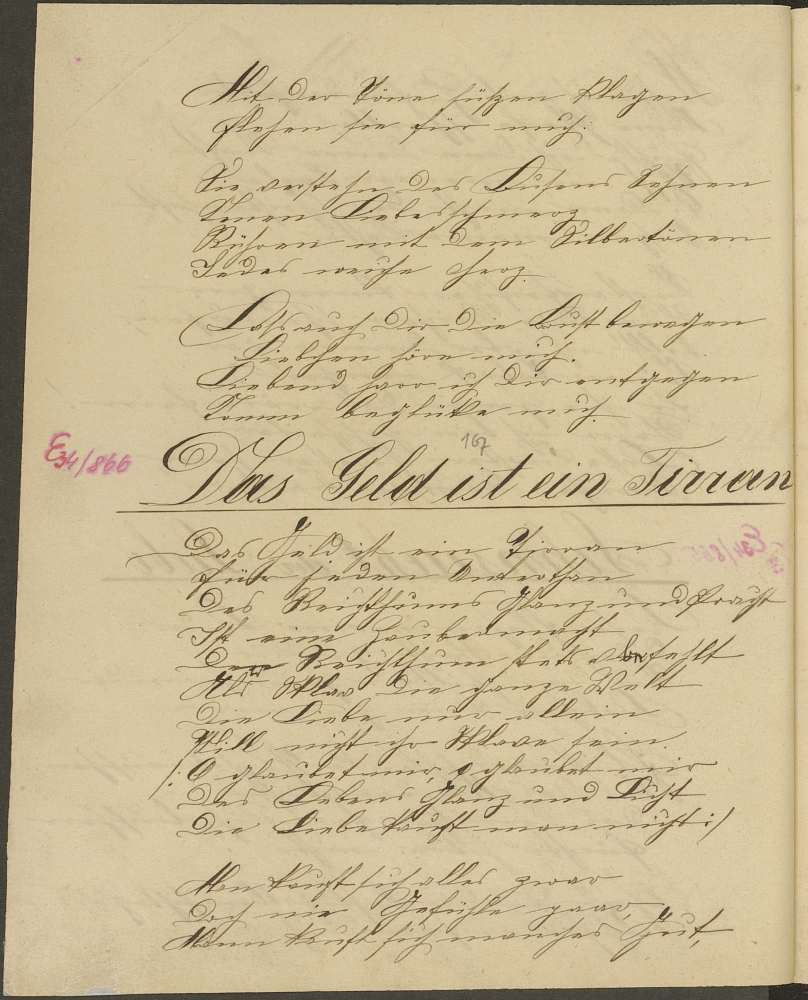 Mit der Töne süßen Klagen
flehen sie für mich.
Sie verstehn des Busens Sehnen
Kenen Liebesschmerz
Rühren mit dem Silbertönen
Jedes weiche Herz.
Lass auch Dir die Brust bewegen
Liebchen höre mich.
Liebend harr ich Dir entgegen
Komm beglüke mich
167
E34/866
Das Geld ist ein Tirran
Das Geld ist ein Tirran
für jeden Unterthan
Des Reichthums Glanz und Pracht
Ist eine Zaubermacht
Der Reichthum stets befehlt
Als er Sklav die ganze Welt
Die Liebe nur allein
Will nicht ihr Sklave sein.
/: O glaubet mir, o glaubet mir
Des Lebens Glanz und Licht
Die Liebe kauft man nicht :/
Man kauft sich alles zwar
Doch nie Gefühle gaar,
Man kauft sich manches Gut,